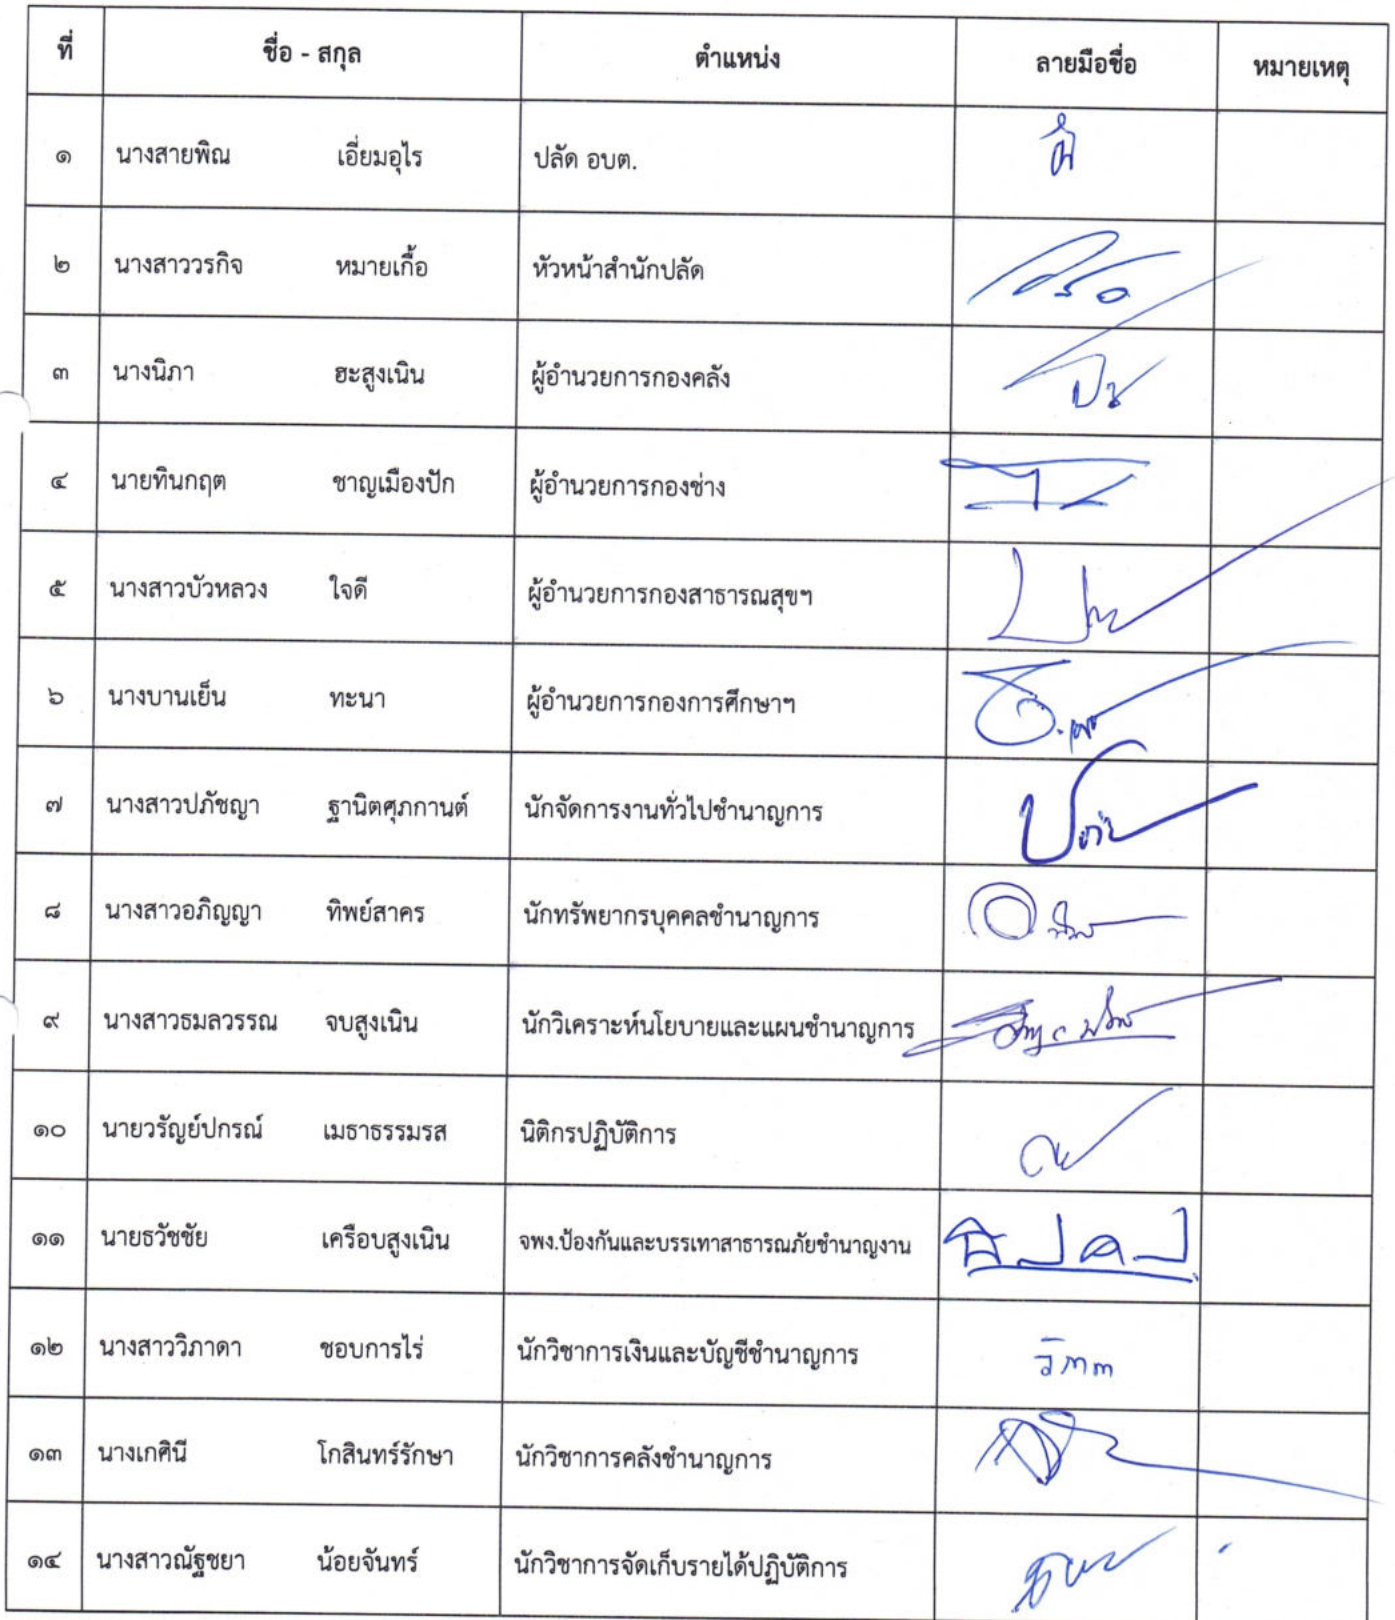 ที่ ชื่อ - สกุล ตำแหน่ง ลายมือชื่อ หมายเหตุ
๑ นางสายพิณ เอี่ยมอุไร ปลัด อบต.
๒ นางสาววรกิจ หมายเกื้อ หัวหน้าสำนักปลัด
๓ นางนิภา ฮะสูงเนิน ผู้อำนวยการกองคลัง
๔ นายทินกฤต ชาญเมืองปัก ผู้อำนวยการกองช่าง
๕ นางสาวบัวหลวง ใจดี ผู้อำนวยการกองสาธารณสุขฯ
๖ นางบานเย็น ทะนา ผู้อำนวยการกองการศึกษาฯ
๗ นางสาวปภัชญา ฐานิตศุภกานต์ นักจัดการงานทั่วไปชำนาญการ
๘ นางสาวอภิญญา ทิพย์สาคร นักทรัพยากรบุคคลชำนาญการ
๙ นางสาวธมลวรรณ จบสูงเนิน นักวิเคราะห์นโยบายและแผนชำนาญการ
๑๐ นายวรัญย์ปกรณ์ เมธาธรรมรส นิติกรปฏิบัติการ
๑๑ นายธวัชชัย เครือบสูงเนิน จพง.ป้องกันและบรรเทาสาธารณภัยชำนาญงาน
๑๒ นางสาววิภาดา ชอบการไร่ นักวิชาการเงินและบัญชีชำนาญการ
๑๓ นางเกศินี โกสินทร์รักษา นักวิชาการคลังชำนาญการ
๑๔ นางสาวณัฐชยา น้อยจันทร์ นักวิชาการจัดเก็บรายได้ปฏิบัติการ